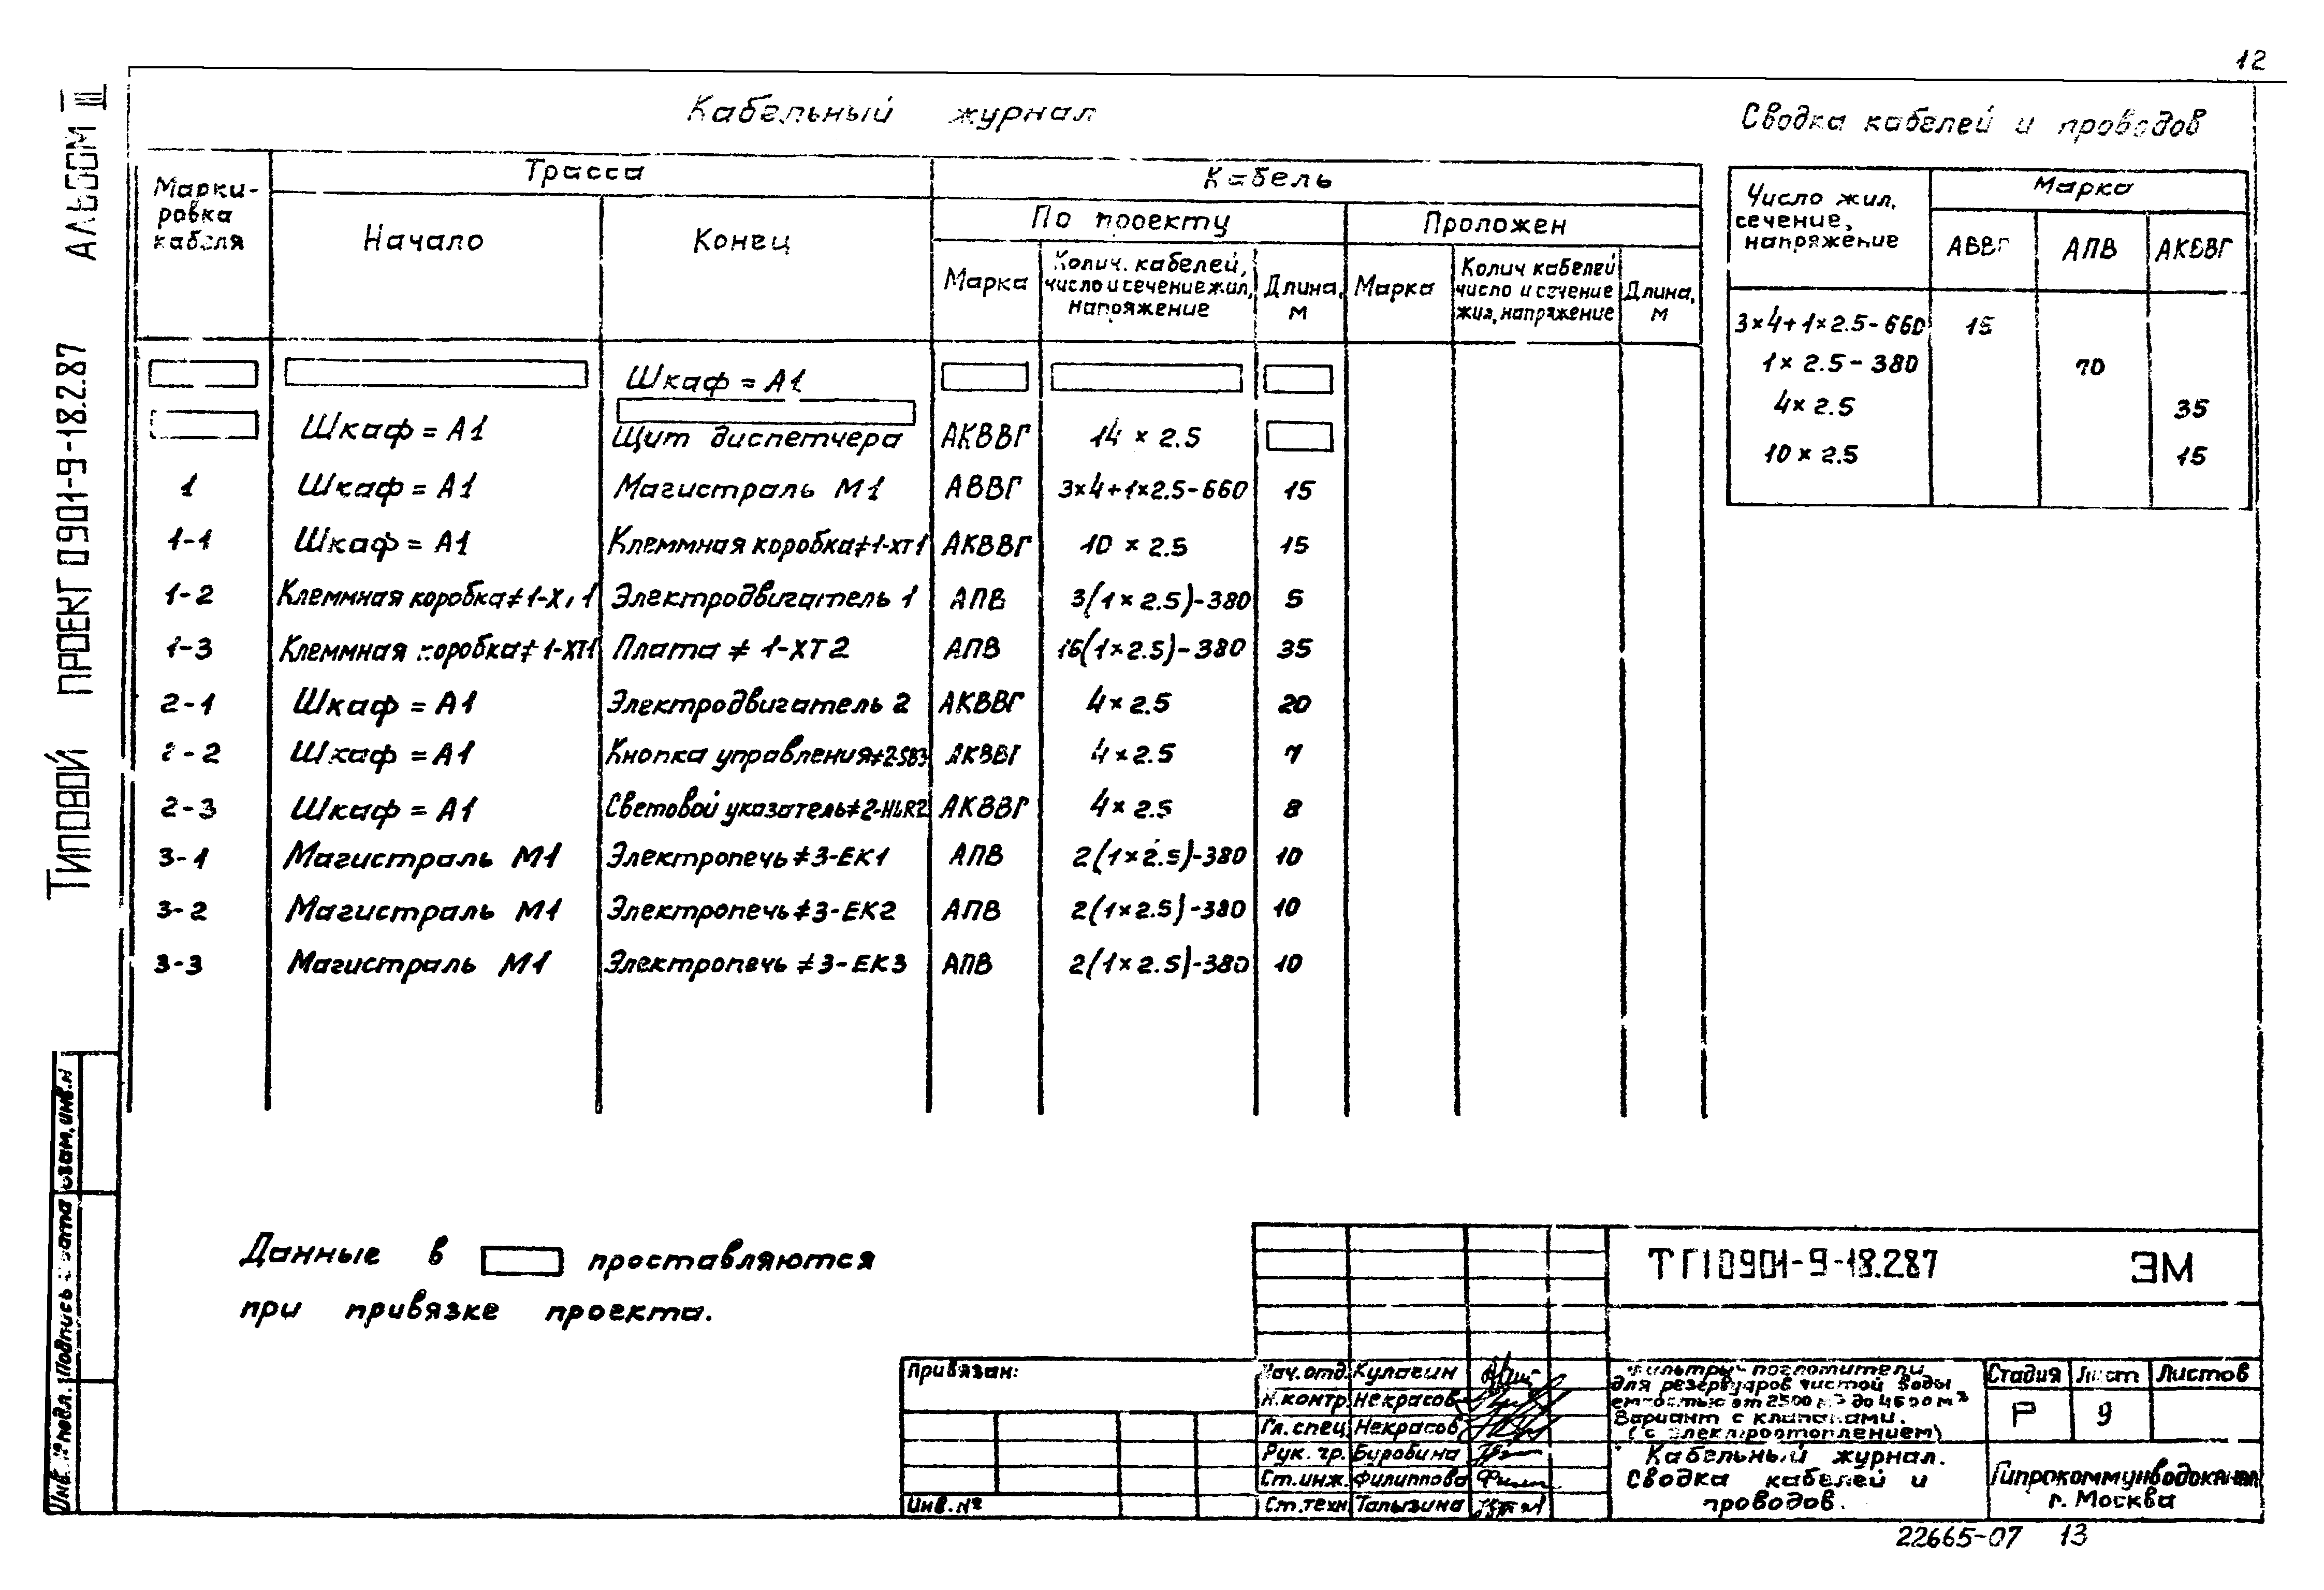 12
Альбом III
Типовой проект 0901-9-18.2.87
Кабельный журнал
Сводка кабелей и проводов
Марки-
ровка
кабеля
Трасса
Кабель
Начало
Конец
По проекту
Проложен
Марка
Колич. кабелей,
число и сечение жил,
напряжение
Длина,
м
Марка
Колич кабелей
число и сечение
жил, напряжение
Длина,
м
Шкаф = А1
Шкаф = А1 Щит диспетчера АКВВГ 14 × 2.5
1 Шкаф = А1 Магистраль М1 АВВГ 3×4+1×2.5-660 15
1-1 Шкаф = А1 Клеммная коробка ≠ 1-ХТ1 АКВВГ 10 × 2.5 15
1-2 Клеммная коробка ≠ 1-ХТ1 Электродвигатель 1 АПВ 3(1×2.5)-380 5
1-3 Клеммная коробка ≠ 1-ХТ1 Плата ≠ 1-ХТ2 АПВ 16(1×2.5)-380 35
2-1 Шкаф = А1 Электродвигатель 2 АКВВГ 4×2.5 20
2-2 Шкаф = А1 Кнопка управления ≠2-SB3 АКВВГ 4×2.5 7
2-3 Шкаф = А1 Световой указатель ≠2-HLR2 АКВВГ 4×2.5 8
3-1 Магистраль М1 Электропечь ≠3-ЕК1 АПВ 2(1×2.5)-380 10
3-2 Магистраль М1 Электропечь ≠3-ЕК2 АПВ 2(1×2.5)-380 10
3-3 Магистраль М1 Электропечь ≠3-ЕК3 АПВ 2(1×2.5)-380 10
Число жил,
сечение,
напряжение
Марка
АВВГ АПВ АКВВГ
3×4+1×2.5-660 15
1×2.5-380 70
4×2.5 35
10×2.5 15
Данные в проставляются
при привязке проекта.
Инв. № подл. Подпись и дата Взам. инв. №
Привязан:
Инв. №
Нач. отд. Кулагин
Н. контр. Некрасов
Гл. спец. Некрасов
Рук. гр. Буробина
Ст. инж. Филиппова
Ст. техн. Талызина
ТП 0901-9-18.2.87 ЭМ
Фильтры поглотители
для резервуаров чистой воды
емкостью от 2500 м³ до 4600 м³
Вариант с клапанами.
(с электроотоплением)
Стадия Лист Листов
Р 9
Кабельный журнал.
Сводка кабелей и
проводов.
Гипрокоммунводоканал
г. Москва
22665-07 13